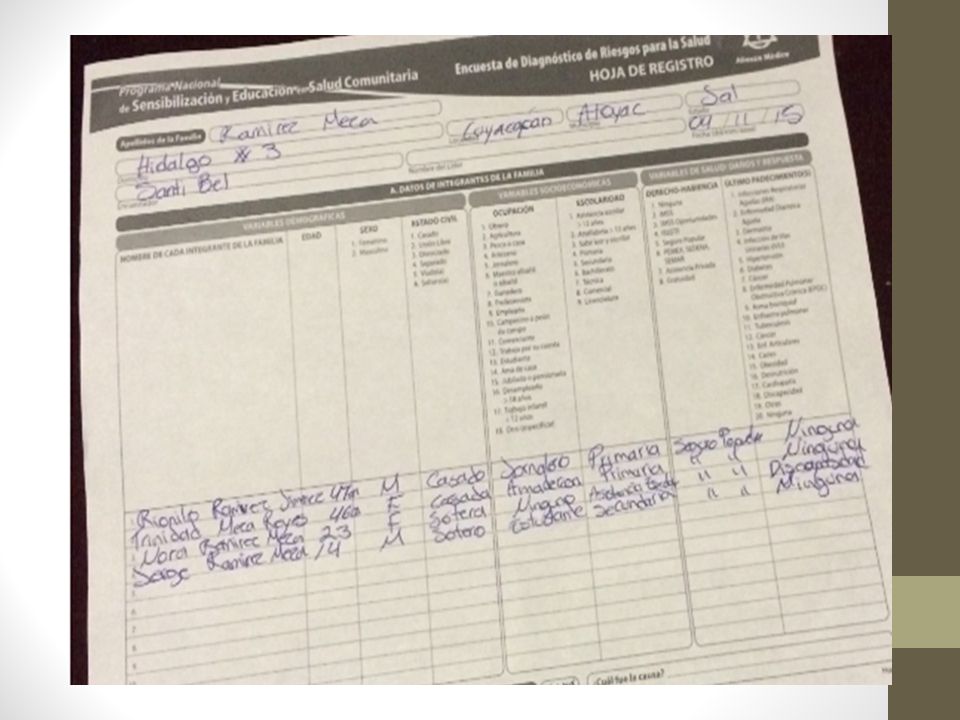 Programa Nacional
de Sensibilización y Educación en Salud Comunitaria
Encuesta de Diagnóstico de Riesgos para la Salud
HOJA DE REGISTRO
Alianza Médica
Apellidos de la Familia Ramirez Meza
Atoyac
Sal
Hidalgo # 3
Nombre del Líder
09/11/15
Santi Bel
A. DATOS DE INTEGRANTES DE LA FAMILIA
VARIABLES DEMOGRÁFICAS
VARIABLES SOCIOECONÓMICAS
VARIABLES DE SALUD: DAÑOS Y RESPUESTA
NOMBRE DE CADA INTEGRANTE DE LA FAMILIA
EDAD
SEXO
1. Femenino
2. Masculino
ESTADO CIVIL
1. Casado
2. Unión Libre
3. Divorciado
4. Separado
5. Viudo(a)
6. Soltero(a)
OCUPACIÓN
1. Obrero
2. Agricultura
3. Pesca o caza
4. Artesano
5. Jornalero
6. Maestro albañil
o albañil
7. Ganadero
9. Empleado
10. Campesino o peón
de campo
11. Comerciante
12. Trabaja por su cuenta
13. Estudiante
14. Ama de casa
15. Jubilado o pensionado
16. Desempleado
> 18 años
17. Trabajo infantil
< 12 años
18. Otro (especificar)
ESCOLARIDAD
1. Asistencia escolar
3. Sabe leer y escribir
4. Primaria
5. Secundaria
6. Bachillerato
7. Técnica
8. Comercial
9. Licenciatura
DERECHO-HABIENCIA
1. Ninguna
2. IMSS
3. IMSS Oportunidades
4. ISSSTE
5. Seguro Popular
6. PEMEX, SEDENA,
SEMAR
7. Asistencia Privada
ÚLTIMO PADECIMIENTO(S)
1. Infecciones Respiratorias
Agudas (IRA)
2. Enfermedad Diarreica
Aguda
3. Dermatitis
4. Infección de Vías
Urinarias (IVU)
5. Hipertensión
6. Diabetes
7. Cáncer
8. Enfermedad Pulmonar
Obstructiva Crónica (EPOC)
9. Asma bronquial
11. Tuberculosis
12. Cáncer
13. Enf. Articulares
14. Caries
15. Obesidad
16. Desnutrición
17. Cardiopatía
18. Discapacidad
19. Otras
20. Ninguna
Ramirez M Casado Jornalero Primaria Seguro Popular Ninguna
Trinidad Meza Reyes F Casada Primaria " " Ninguna
Nora Ramirez Meza 23 F Soltera Ninguno " " Discapacidad
Jorge Ramirez Meza 14 M Soltero Estudiante Secundaria " " Ninguna
5.
6.
7.
8.
9.
¿Cuál fue la causa?